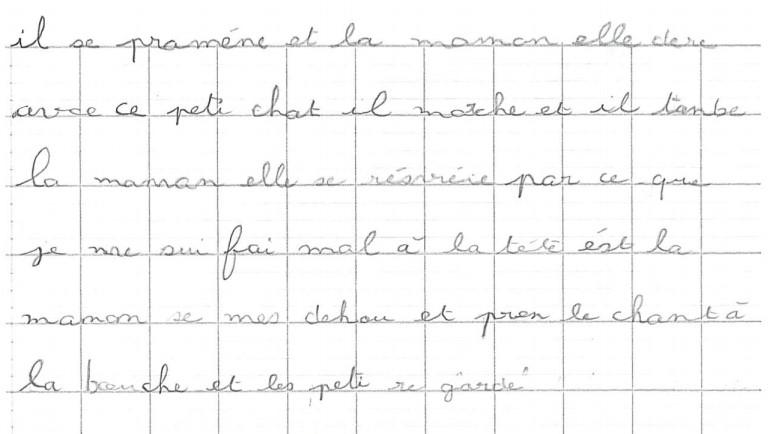 il se praméne et la maman elle dere
avce ce peti chat il marche et il tanbe
la maman elle se résvréie par ce que
je me sui fai mal à la tétè ést la
maman se mes dehou et pren le chant à
la bouche et les peti re gardé